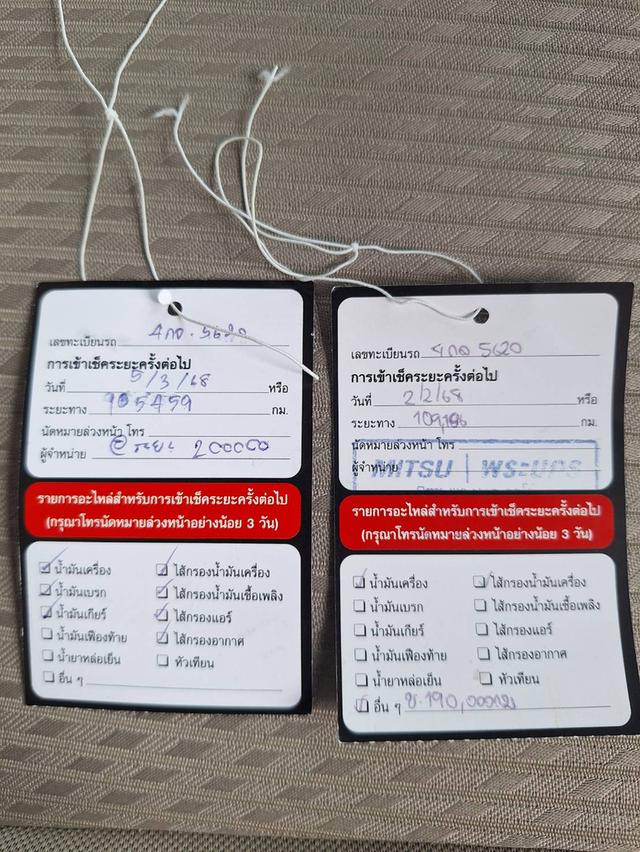 เลขทะเบียนรถ
การเข้าเช็คระยะครั้งต่อไป
วันที่ 5/3/68 หรือ
ระยะทาง กม.
นัดหมายล่วงหน้า โทร
ผู้จำหน่าย @ ระยะ 200000
รายการอะไหล่สำหรับการเข้าเช็คระยะครั้งต่อไป
(กรุณาโทรนัดหมายล่วงหน้าอย่างน้อย 3 วัน)
น้ำมันเครื่อง ไส้กรองน้ำมันเครื่อง
น้ำมันเบรก ไส้กรองน้ำมันเชื้อเพลิง
น้ำมันเกียร์ ไส้กรองแอร์
น้ำมันเฟืองท้าย ไส้กรองอากาศ
น้ำยาหล่อเย็น หัวเทียน
อื่น ๆ
เลขทะเบียนรถ 4กอ 5620
การเข้าเช็คระยะครั้งต่อไป
วันที่ 2/2/68 หรือ
ระยะทาง กม.
นัดหมายล่วงหน้า โทร
ผู้จำหน่าย MITSU | พระนคร
รายการอะไหล่สำหรับการเข้าเช็คระยะครั้งต่อไป
(กรุณาโทรนัดหมายล่วงหน้าอย่างน้อย 3 วัน)
น้ำมันเครื่อง ไส้กรองน้ำมันเครื่อง
น้ำมันเบรก ไส้กรองน้ำมันเชื้อเพลิง
น้ำมันเกียร์ ไส้กรองแอร์
น้ำมันเฟืองท้าย ไส้กรองอากาศ
น้ำยาหล่อเย็น หัวเทียน
อื่น ๆ 190,000